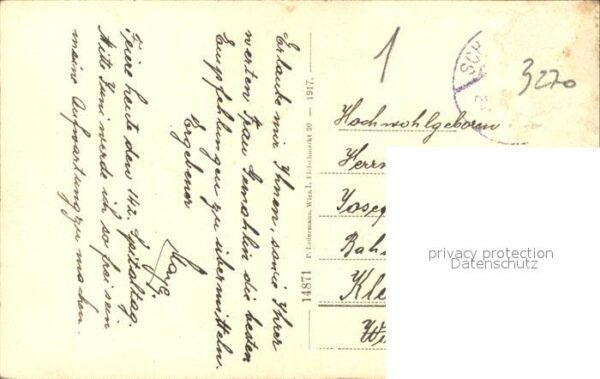 Erlaube mir Ihnen, sowie Ihrer
werten Frau Gemahlin die besten
Empfehlungen zu übermitteln.
Ergebener
Feiere heute den 142. Spitaltag.
Mitte Juni werde ich so frei sein
meine Aufwartung zu machen.
14871 P. Ledermann, Wien I., Fleischmarkt 20 — 1917.
1
SCH
3270
Hochwohlgeboren
Herrn
Josef
Bah
Kle
Wi
privacy protection
Datenschutz